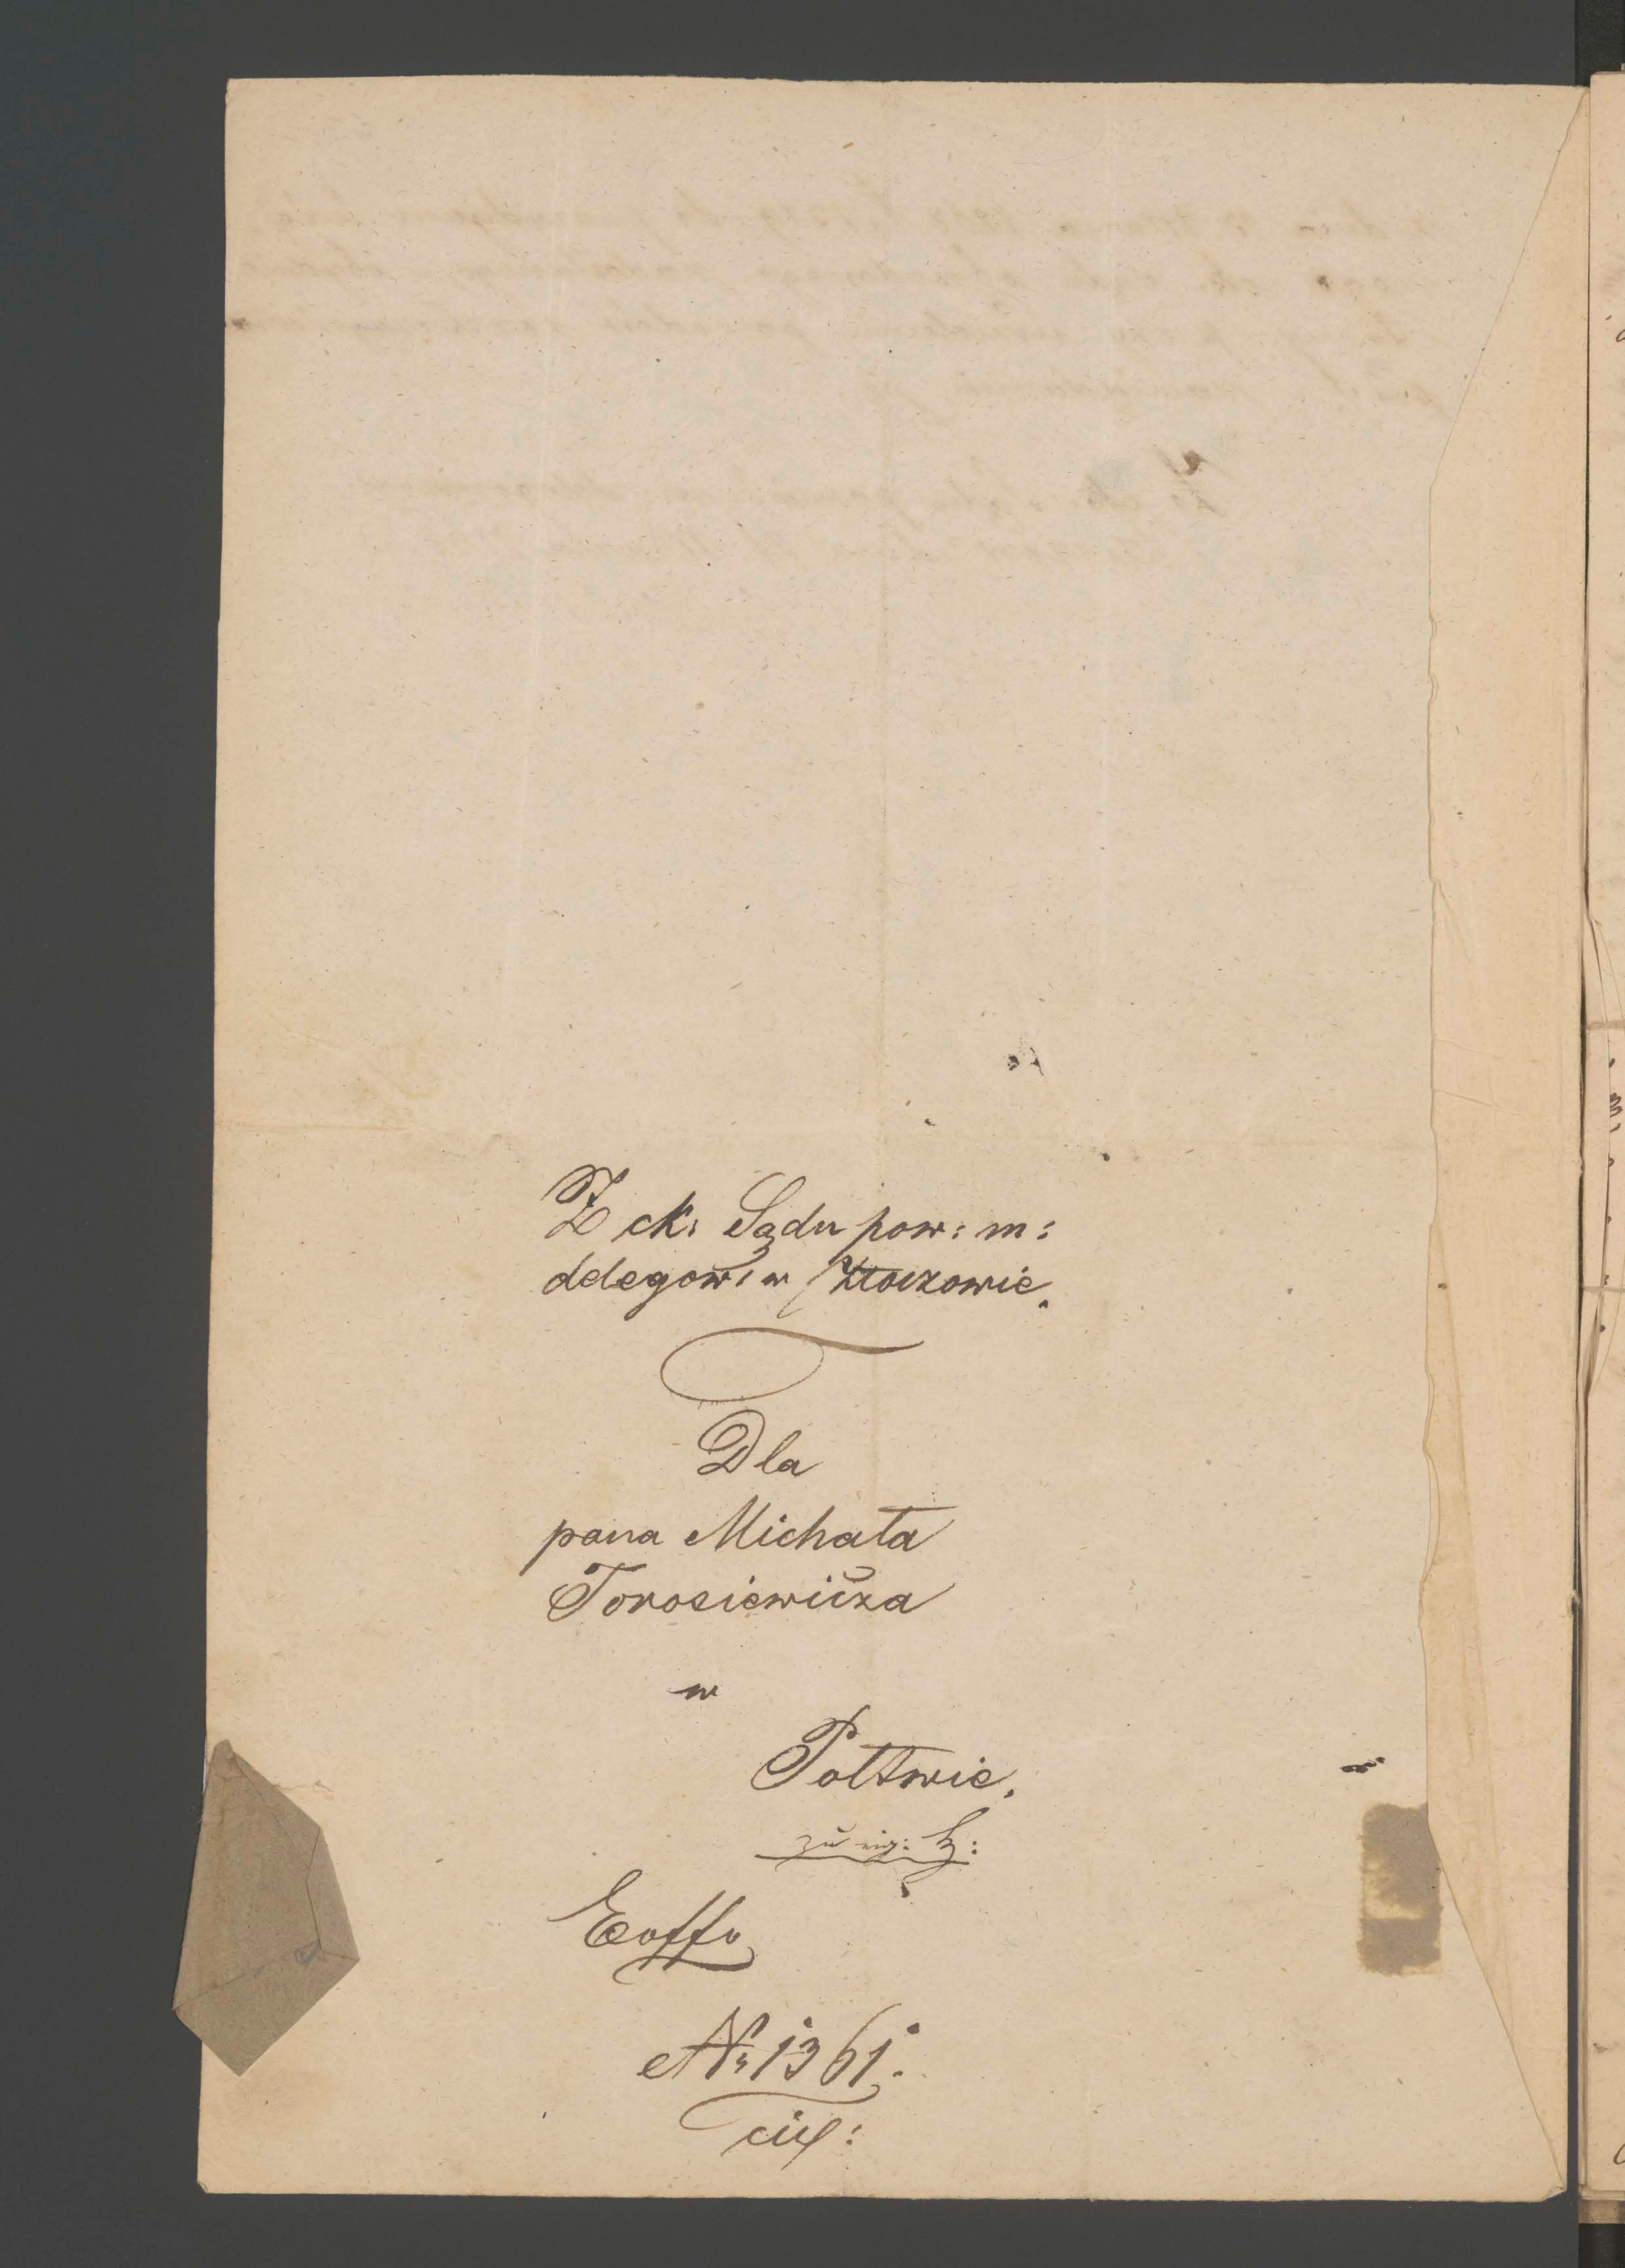 Z ck: Sądu pow: m:
delegow: w Złoczowie.
Dla
pana Michała
Torosiewicza
w
Połtwie.
zu eig: H:
Exoffo
№ 1361.
civ: